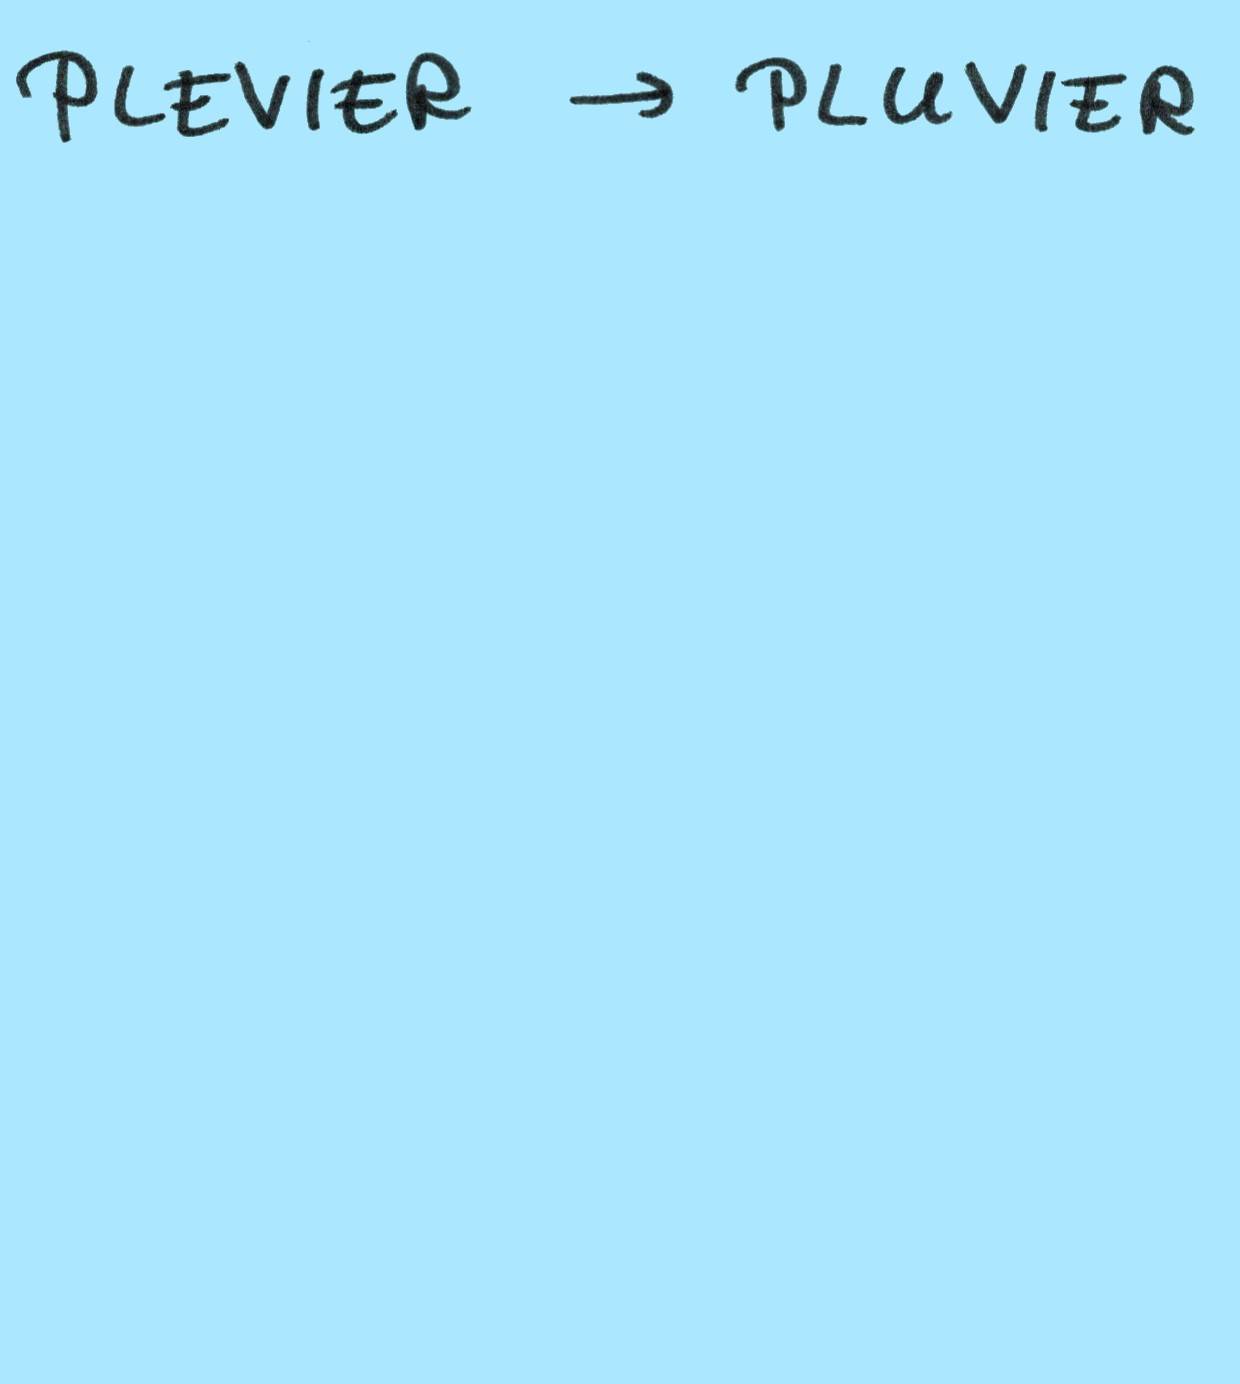 PLEVIER → PLUVIER